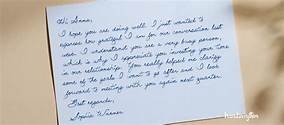 Hi Anna,
I hope you are doing well. I just wanted to
express how grateful I am for our conversation last
week. I understand you are a very busy person,
which is why I appreciate you investing your time
in our relationship. You really helped me clarify
some of the goals I want to go after and I look
forward to meeting with you again next quarter.
Best regards,
Sophie Winner